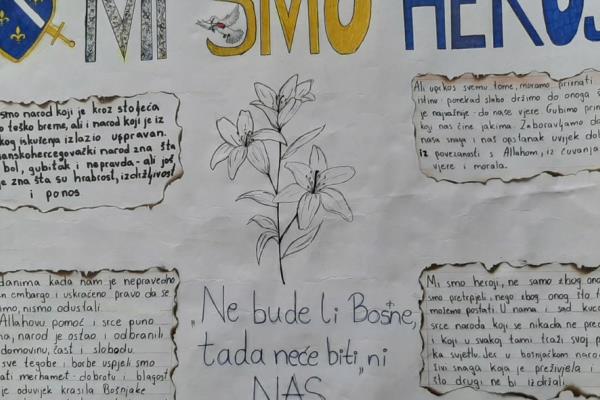 MI SMO HEROJ
smo narod koji je kroz stoljeća
o teško breme, ali i narod koji je iz
kog iskušenja izlazio uspravan.
anskohercegovački narod zna šta
bol, gubitak i nepravda - ali još
je zna šta su hrabrost, izdržljivost
i ponos
Ali uprkos svemu tome, moramo priznati
istinu - ponekad slabo držimo do onoga š
je najvažnije - do naše vjere Gubimo prin
koji nas čine jakima. Zaboravljamo da
naša snaga i naš opstanak uvijek dola
iz povezanosti s Allahom, iz čuvanja
vjere i morala.
danima kada nam je nepravedno
en embargo i uskraćeno pravo da se
imo, nismo odustali.
Allahovu pomoć i srce puno
na, narod je ostao i odbranili
domovinu, čast i slobodu.
sve tegobe i borbe uspjeli smo
ati merhamet - dobrotu i blagost
je oduvijek krasila Bošnjake
„Ne bude li Bosne,
tada neće biti ni
NAS
Mi smo heroji, ne samo zbog ono
smo pretrpjeli, nego zbog onog što t
možemo postati. U nama i sad kuca
srce naroda koji se nikada ne pred
i koji u svakoj tami traži svoj p
ka svjetlu. Jer u bošnjačkom narod
živi snaga koja je preživjela i
što drugi ne bi izdržali.